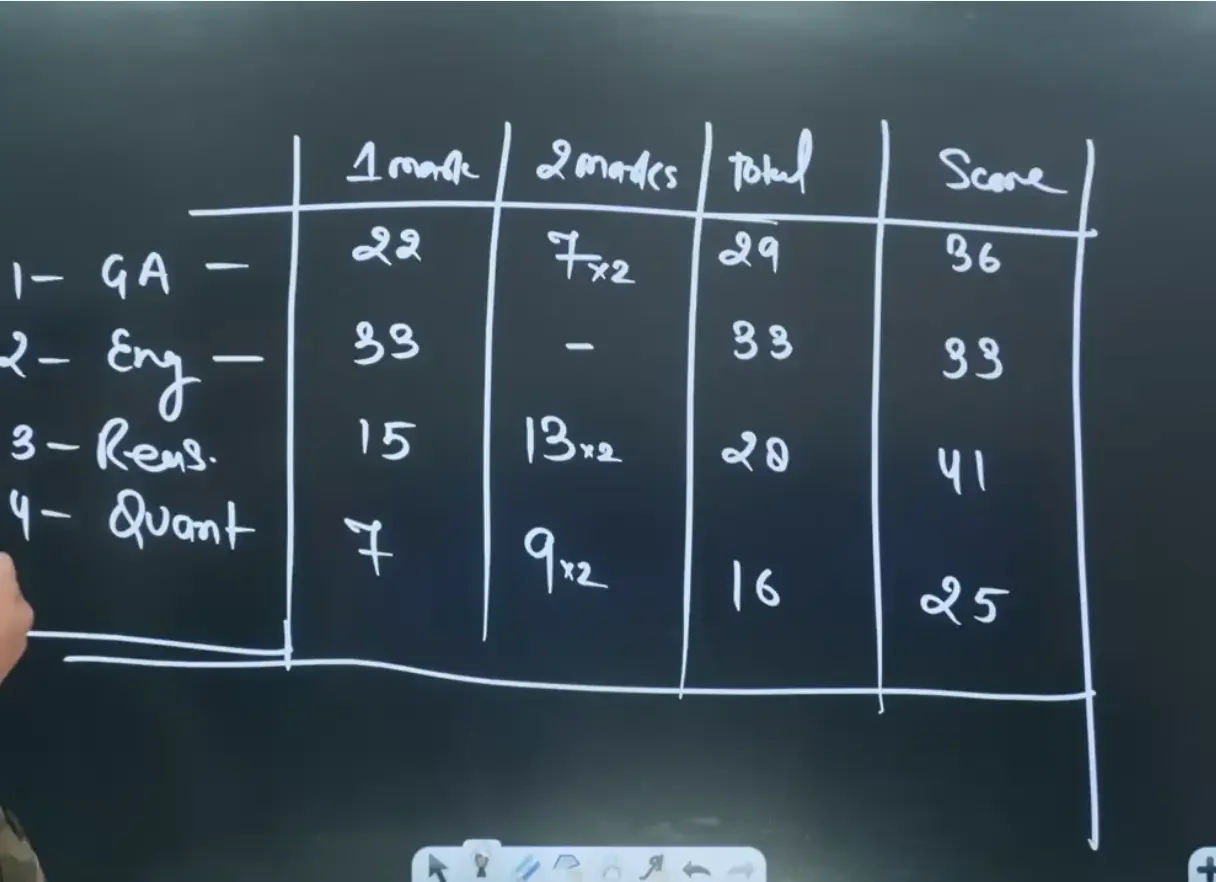 1 mark 2 marks Total Score
1- GA - 22 7x2 29 36
2- Eng - 33 - 33 33
3- Reas. 15 13x2 28 41
4- Quant 7 9x2 16 25